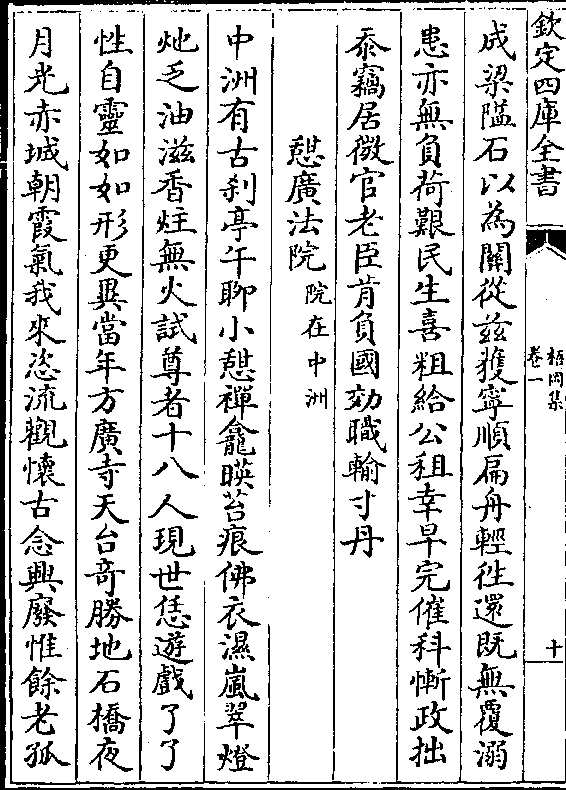 欽定四庫全書
梧岡集
卷一
十
成梁隘石以為關從兹獲寧順扁舟輕往還既無覆溺
患亦無負荷艱民生喜粗給公租幸早完催科慚政拙
忝竊居微官老臣肯負國効職輸寸丹
憇廣法院院在中洲
中洲有古刹亭午聊小憇禪龕暎苔痕佛衣濕嵐翠燈
灺乏油滋香炷無火試尊者十八人現世恁遊戲了了
性自靈如如形更異當年方廣寺天台竒勝地石橋夜
月光赤城朝霞氣我來恣流觀懷古念興廢惟餘老孤